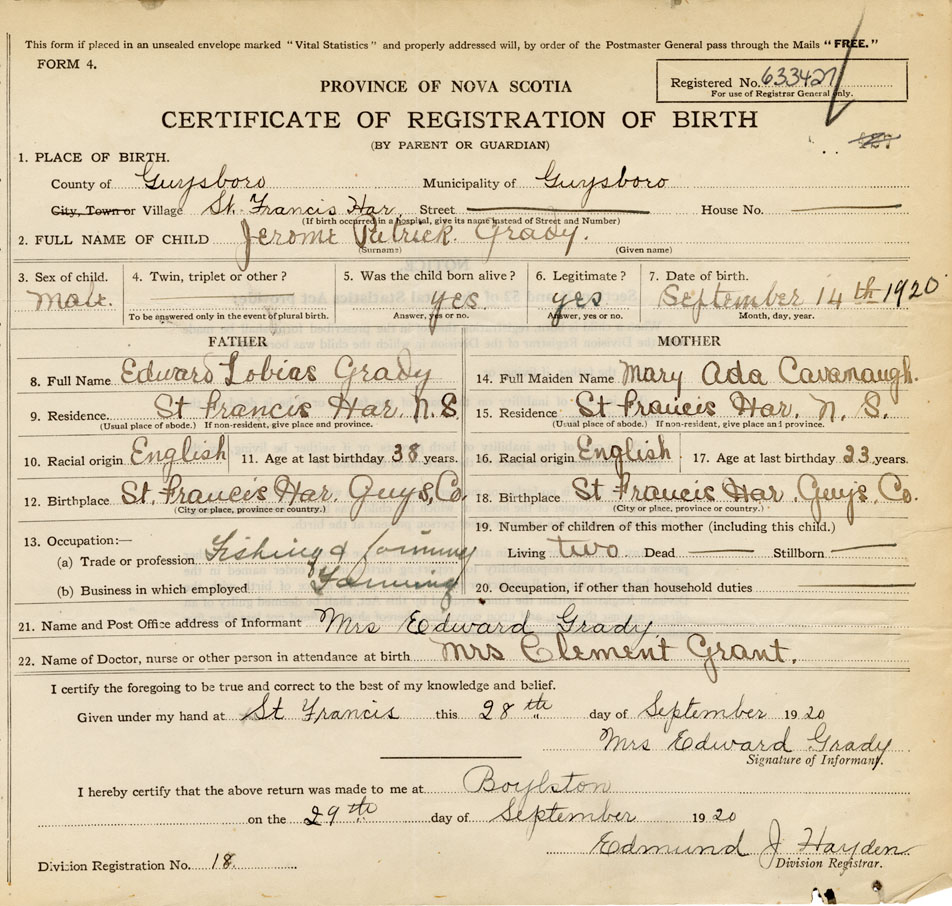 This form if placed in an unsealed envelope marked "Vital Statistics" and properly addressed will, by order of the Postmaster General pass through the Mails "FREE."
FORM 4.
Registered No. 633427
For use of Registrar General only.
PROVINCE OF NOVA SCOTIA
CERTIFICATE OF REGISTRATION OF BIRTH
(BY PARENT OR GUARDIAN)
1. PLACE OF BIRTH.
County of Guysboro Municipality of Guysboro
City, Town or Village St. Francis Har. Street House No.
(If birth occurred in a hospital, give its name instead of Street and Number)
2. FULL NAME OF CHILD Jerome Patrick Grady.
(Surname) (Given name)
3. Sex of child. 4. Twin, triplet or other? 5. Was the child born alive? 6. Legitimate? 7. Date of birth.
Male. yes yes September 14th 1920
To be answered only in the event of plural birth. Answer, yes or no. Answer, yes or no. Month, day, year.
FATHER MOTHER
8. Full Name Edward Tobias Grady 14. Full Maiden Name Mary Ada Cavanaugh.
9. Residence St Francis Har. N.S. 15. Residence St Francis Har. N. S.
(Usual place of abode.) If non-resident, give place and province. (Usual place of abode.) If non-resident, give place and province.
10. Racial origin English 11. Age at last birthday 38 years. 16. Racial origin English 17. Age at last birthday 23 years.
12. Birthplace St. Francis Har. Guys, Co. 18. Birthplace St Francis Har. Guys. Co.
(City or place, province or country.) (City or place, province or country.)
13. Occupation:— 19. Number of children of this mother (including this child.)
(a) Trade or profession Fishing & Farming Living two Dead Stillborn
(b) Business in which employed Farming 20. Occupation, if other than household duties
21. Name and Post Office address of Informant Mrs Edward Grady
22. Name of Doctor, nurse or other person in attendance at birth Mrs Clement Grant.
I certify the foregoing to be true and correct to the best of my knowledge and belief.
Given under my hand at St Francis this 28th day of September 1920
Mrs Edward Grady
Signature of Informant.
I hereby certify that the above return was made to me at Boylston
on the 29th day of September 1920
Edmund J Hayden
Division Registration No. 18. Division Registrar.